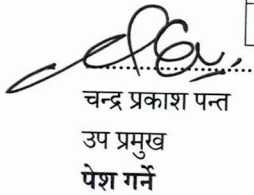 चन्द्र प्रकाश पन्त
उप प्रमुख
पेश गर्ने